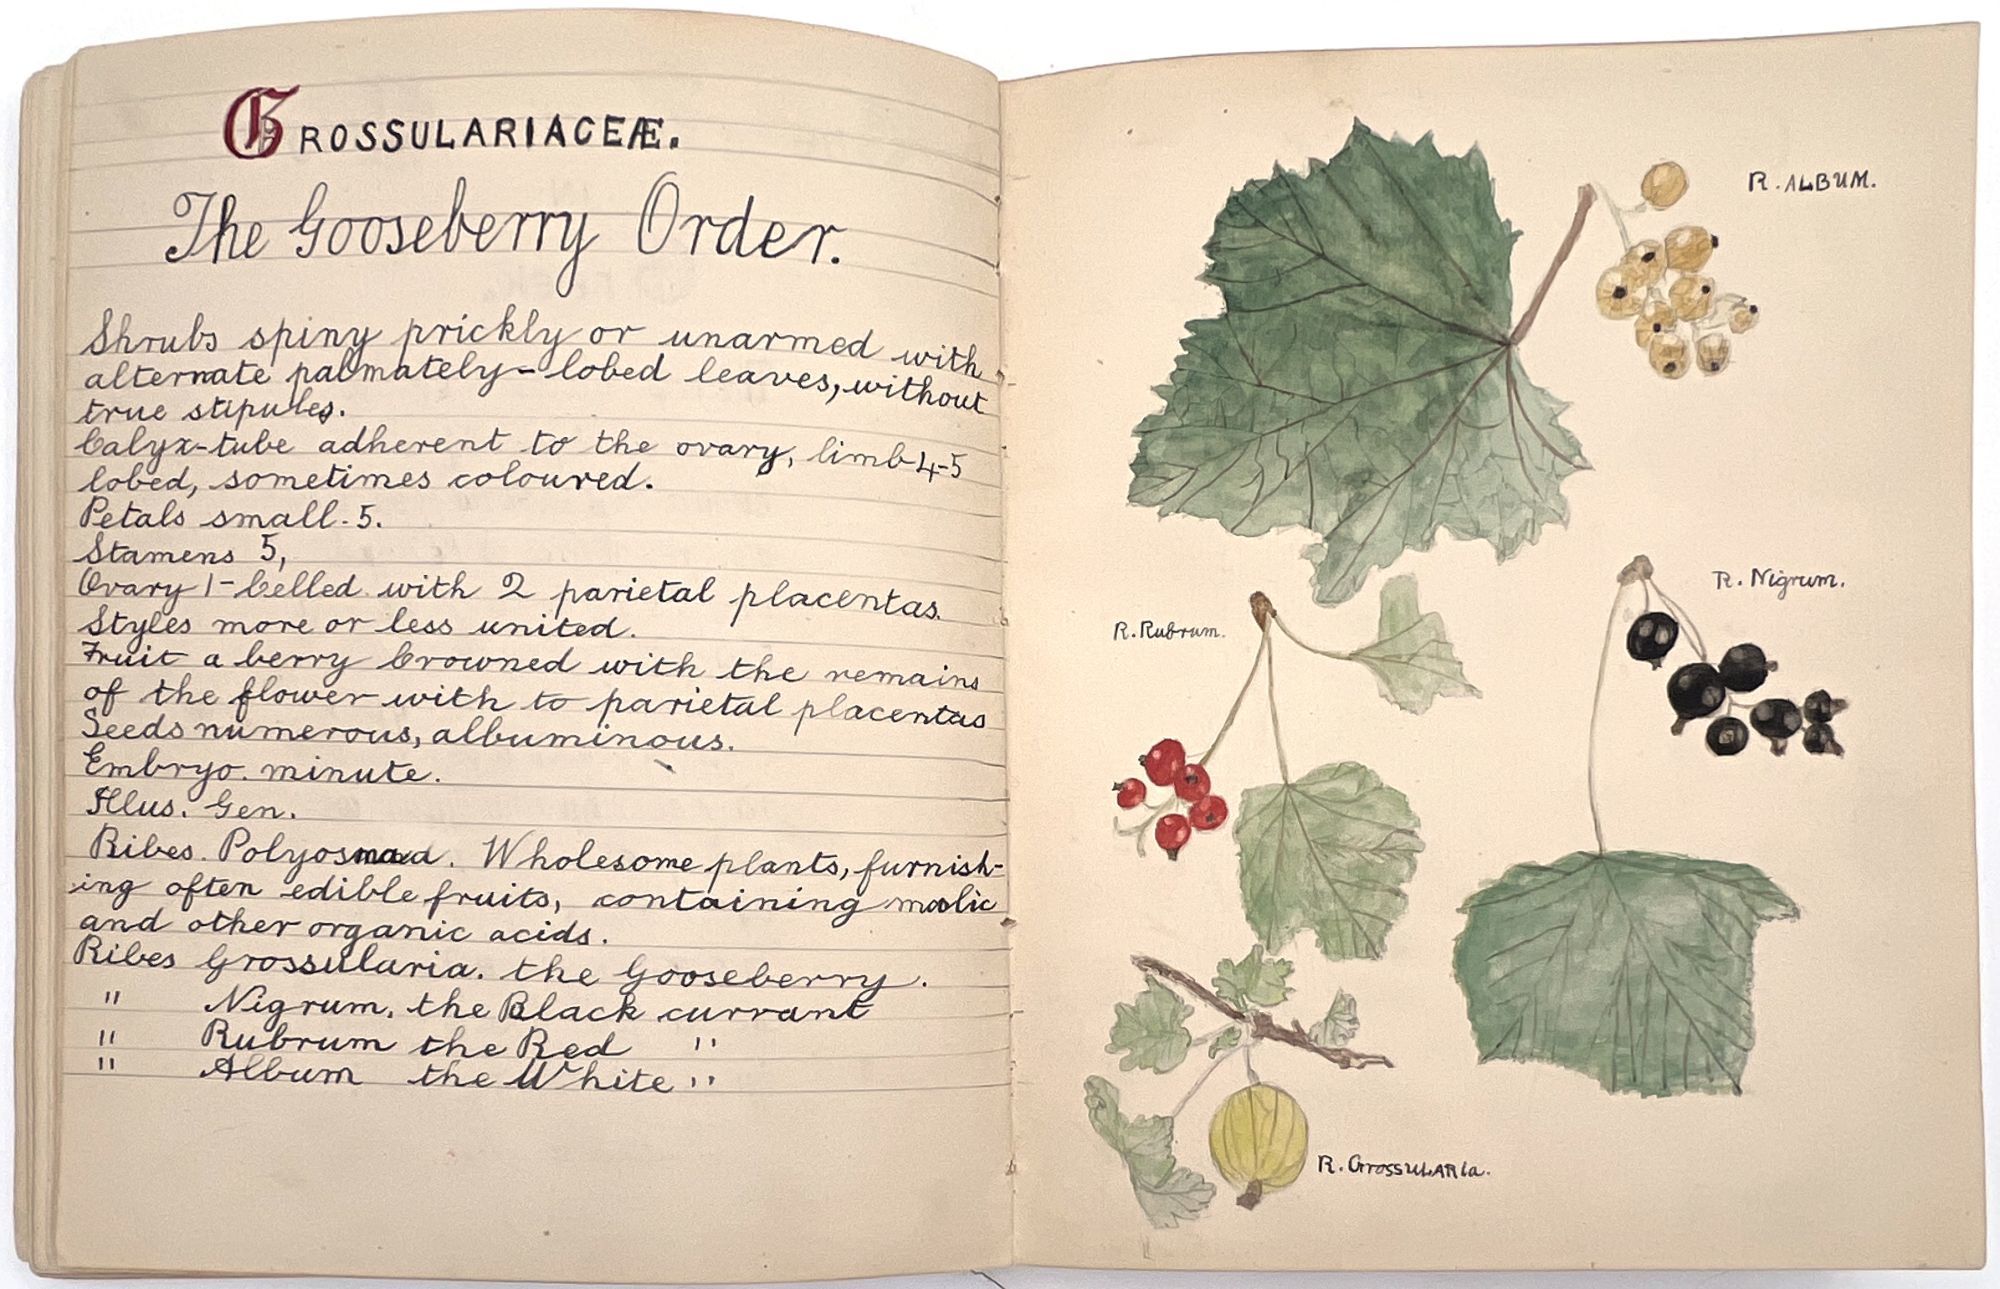 GROSSULARIACEÆ.
The Gooseberry Order.
Shrubs spiny prickly or unarmed with
alternate palmately-lobed leaves, without
true stipules.
Calyx-tube adherent to the ovary, limb 4-5
lobed, sometimes coloured.
Petals small. 5.
Stamens 5,
Ovary 1-Celled with 2 parietal placentas.
Styles more or less united.
Fruit a berry Crowned with the remains
of the flower with to parietal placentas
Seeds numerous, albuminous.
Embryo. minute.
Illus. Gen.
Ribes. Wholesome plants, furnish-
ing often edible fruits, containing malic
and other organic acids.
Ribes Grossularia. the Gooseberry.
" Nigrum, the Black currant
" Rubrum the Red "
" Album the White "
R. ALBUM.
R. Nigrum.
R. Rubrum.
R. GrossULARIa.